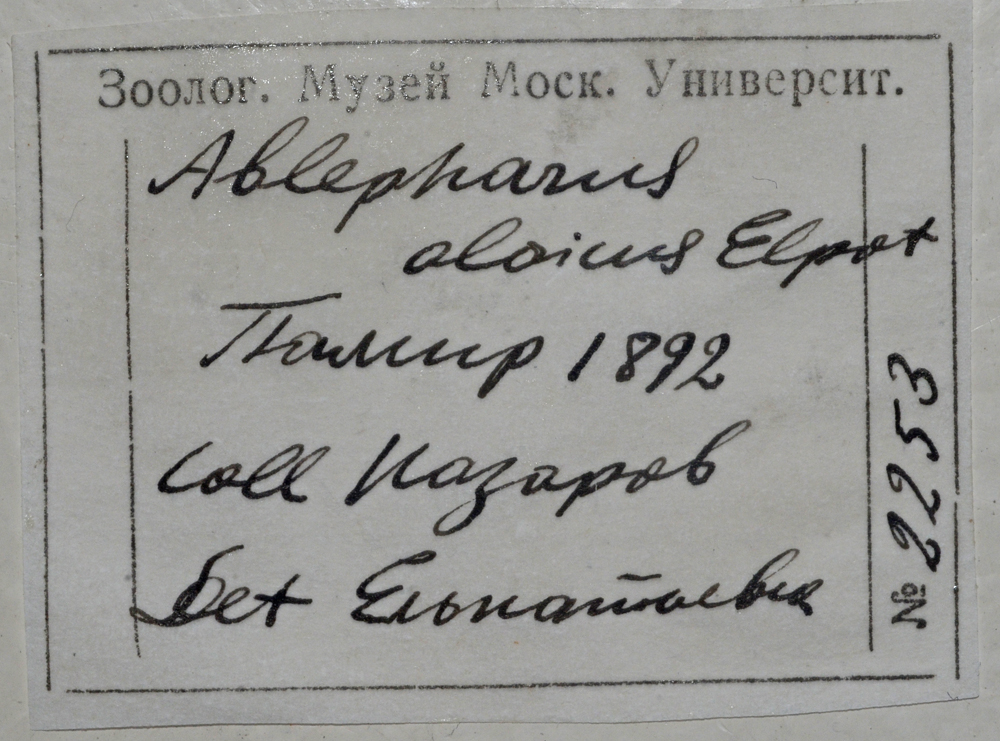 Зоолог. Музей Моск. Университ.
Ablepharus
alaicus Elpat
Памир 1892
Coll Назаров
Det Елпатьевск
№ 2253